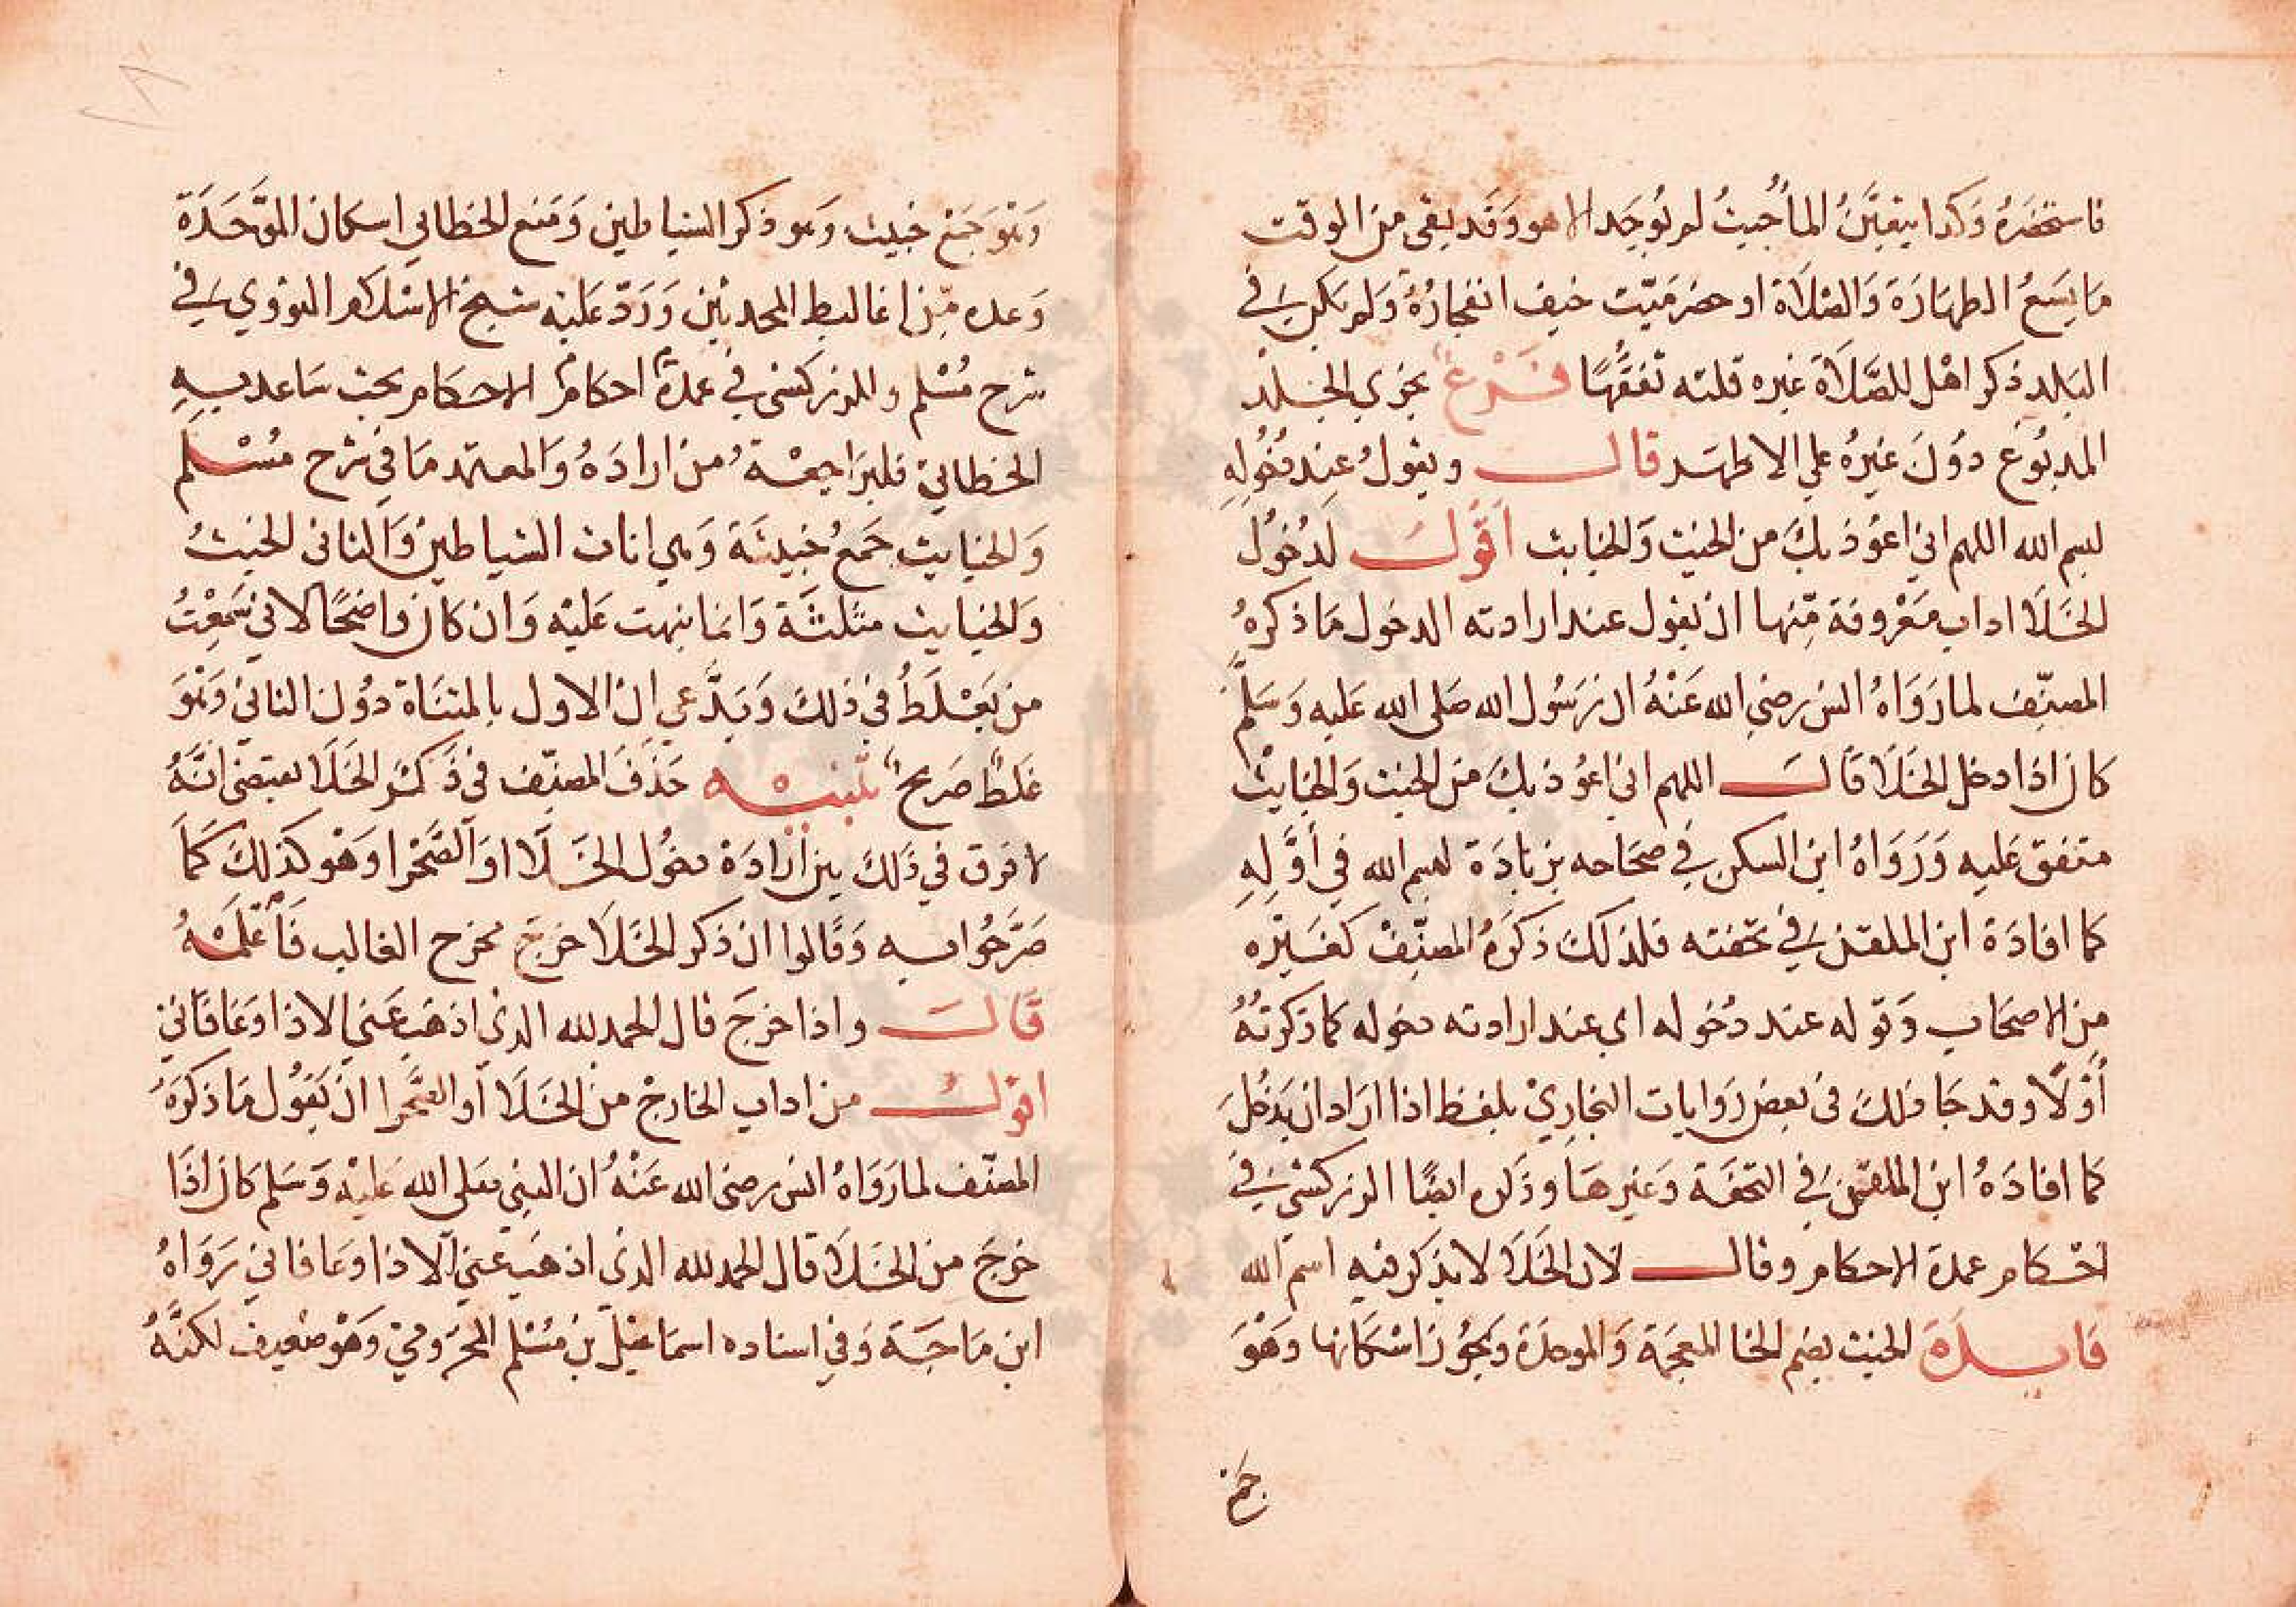 فاستحضره وكذا يتعين الما حيث لو يوجد الا هو وقد بقي من الوقت
مَا يسَعُ الطهَارَة وَالصَلاَة او حضر مَيّت خيف انفجارُهُ وَلم يكن في
البَلد ذكر اهْل للصَّلاَة غيره قلته تفقُّهًا فَرْعٌ يجزي الجلد
المدبُوغ دوُن غيرهُ علي الاظهَر قالـــ ويقولُ عِند دُخُولِهِ
بسم الله اللهم اني اعوُذ بكَ من الخبث وَالخبايث اَقُولـــَ لدُخُول
الخَلاَ اداب مَعْروفة مِّنها ان يقول عند ارادته الدخول مَا ذكرهُ
المصنِّف لما رَوَاهُ انس رضي الله عَنْهُ ان رَسُول الله صَلى الله عَليه وَسَلَّم
كان اذا دخل الخَلَا قَالـــَ اللهم اني اعوُذ بكَ من الخبث وَالخبايث
متفق عَليه وَرَوَاهُ ابن السكن في صحَاحه بزيادَة بسم الله في أوَّلِهِ
كما افادَة ابن الملقن في تحفته فلذلكَ ذكرَهُ المصنِّفْ كغَيرْه
من الاصحَاب وَقوله عند دُخُوله اي عند ارادته دخوله كما ذكرتهُ
أوَّلًا وقد جَا ذلكَ في بعض رَوَايات البخاريْ بلفظ اذا ارَاد ان يَدْخُلَ
كما افادَهُ ابن الملقن في التحفَة وَغيرهَا وذَكره ايضًا الزركشي في
احْكام عمدة الاحكام وقالـــ لان الخَلَا لا يذكر فيه اسم الله
فَايــدَة الخبث بضم الخا المعجَمة وَالموحدَة وَيجُوز اسْكانها وَهْوَ
جمع
وَهْوَ جَمْع خبيث وَهو ذكر الشياطين وَمَنع الخطابي اسكان الموَّحَدَة
وَعده مِّن اغاليط المحدثين وَرَدّ عَليْه شيخ الاسْلام النووي في
شرح مُسْلم والزركشي في عمدة احكام الاحكام بحث سَاعد بــهِ
الخطابيْ فليرَاجعْهُ من ارادَهُ وَالمعتمد مَا في شرح مُسْلم
وَالخبايث جَمعُ خبيثَة وَهي اناث الشياطين وَالثاني الخبيثُ
وَالخبايث مثلثَّة وَانمَا نبهت عَليْه وَان كان واضحًا لاني سَمعْتُ
من يَغْلَطُ في ذلكَ وَيَدَّعي ان الاول بالمثنَاة دوُن الثاني وَهْوَ
غَلطٌ صَريحٌ تنبيـــه حَذَفَ المصنّف في ذكْر الخَلَا يقتضي انَّهُ
لا فرق في ذَلكَ بين ارَادَة دخُول الخَلَا او الصَّحْرا وَهْو كذلكَ كَمَا
صَرَّحُوا بــه وَقَالوا ان ذكر الخَلَا خرجَ مخرج الغالب فَأعْلَمْهُ
قَالـــَ واذا خرجَ قال الحمد لله الذي اذهَب عَني الاذا وَعَافَاني
اقولـــُ من اداب الخارجْ من الخَلَا أو الصَّحرا ان يَقُول مَا ذكرَهُ
المصنّف لما رَوَاهُ انس رضي الله عَنْهُ ان النبي صَلى الله عَليْه وَسَلم كان اذَا
خرجَ من الخَلَا قال الحمد لله الذي اذهَب عَني الاذا وعَافَاني رَوَاهُ
ابن مَاجَة وَفي اسناده اسمَاعيْل بن مسْلم المخزوميْ وَهْو ضعيف لكنَّهُ